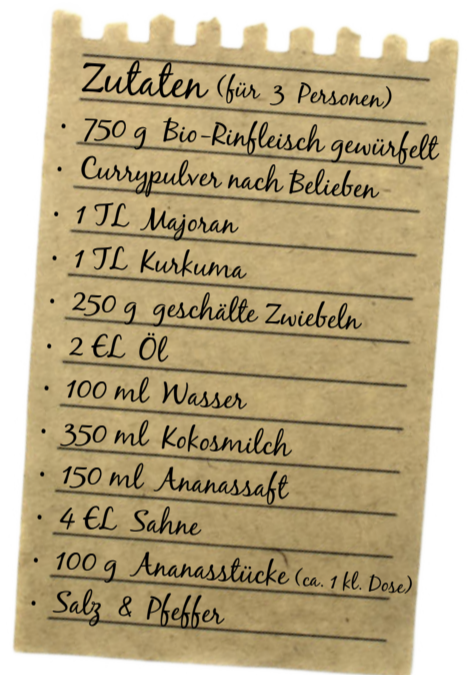 Zutaten (für 3 Personen)
• 750 g Bio-Rinfleisch gewürfelt
• Currypulver nach Belieben
• 1 TL Majoran
• 1 TL Kurkuma
• 250 g geschälte Zwiebeln
• 2 EL Öl
• 100 ml Wasser
• 350 ml Kokosmilch
• 150 ml Ananassaft
• 4 EL Sahne
• 100 g Ananasstücke (ca. 1 kl. Dose)
• Salz & Pfeffer